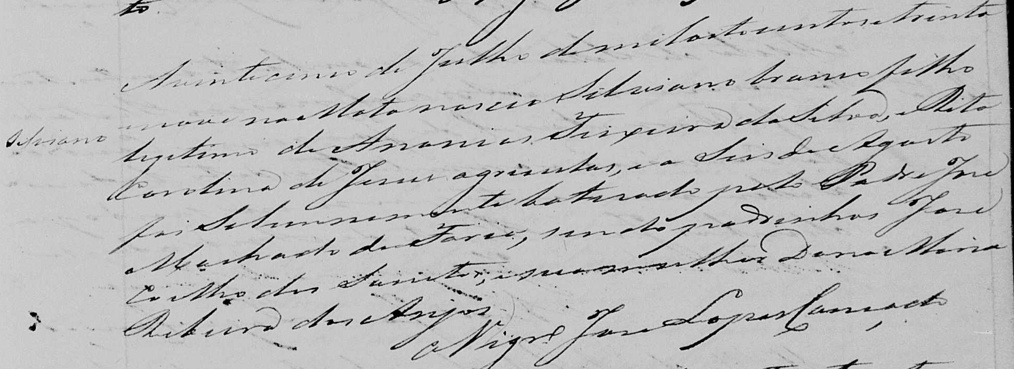 to.
A vinte cinco de Julho de mil oito centos e trinta
Silvano
e nove na Mata nasceo Silvano branco filho
legitimo de Ananias Teixeira da Silva, e Rita
Carolina de Jesus agricultas, e a Seis de Agosto
foi Solennemente batizado pelo Padre Jose
Machado de Faria, sendo padrinhos José
Coelho dos Santos, e sua mulher Dona Maria
Ribeiro dos Anjos
O Vigrº Jose Lopes Cançado